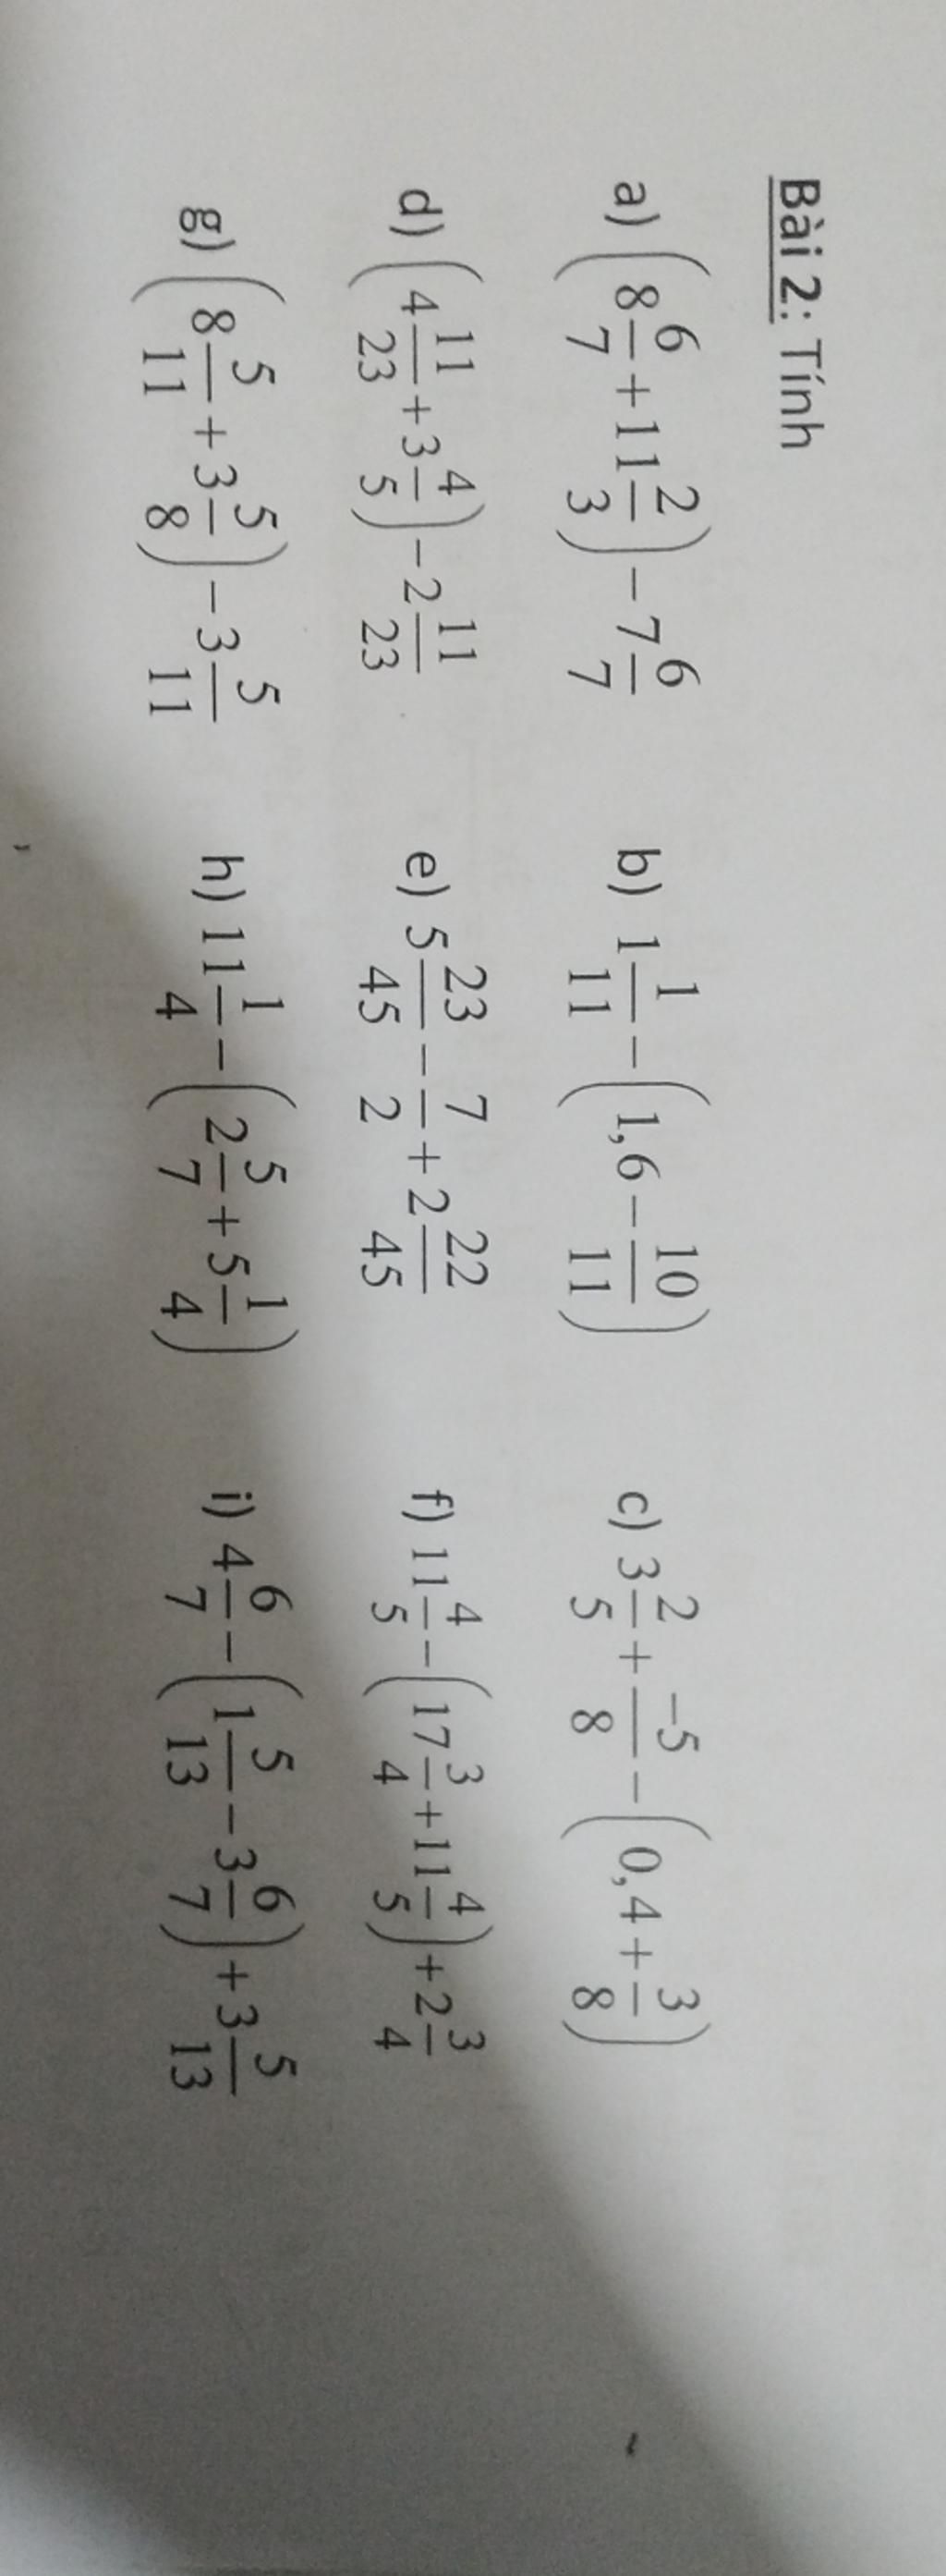 Bài 2: Tính
a) (8 6/7 + 11 2/3) − 7 6/7 b) 1 1/11 − (1,6 − 10/11) c) 3 2/5 + −5/8 − (0,4 + 3/8)
d) (4 11/23 + 3 4/5) − 2 11/23 e) 5 23/45 − 7/2 + 2 22/45 f) 11 4/5 − (17 3/4 + 11 4/5) + 2 3/4
g) (8 5/11 + 3 5/8) − 3 5/11 h) 11 1/4 − (2 5/7 + 5 1/4) i) 4 6/7 − (1 5/13 − 3 6/7) + 3 5/13